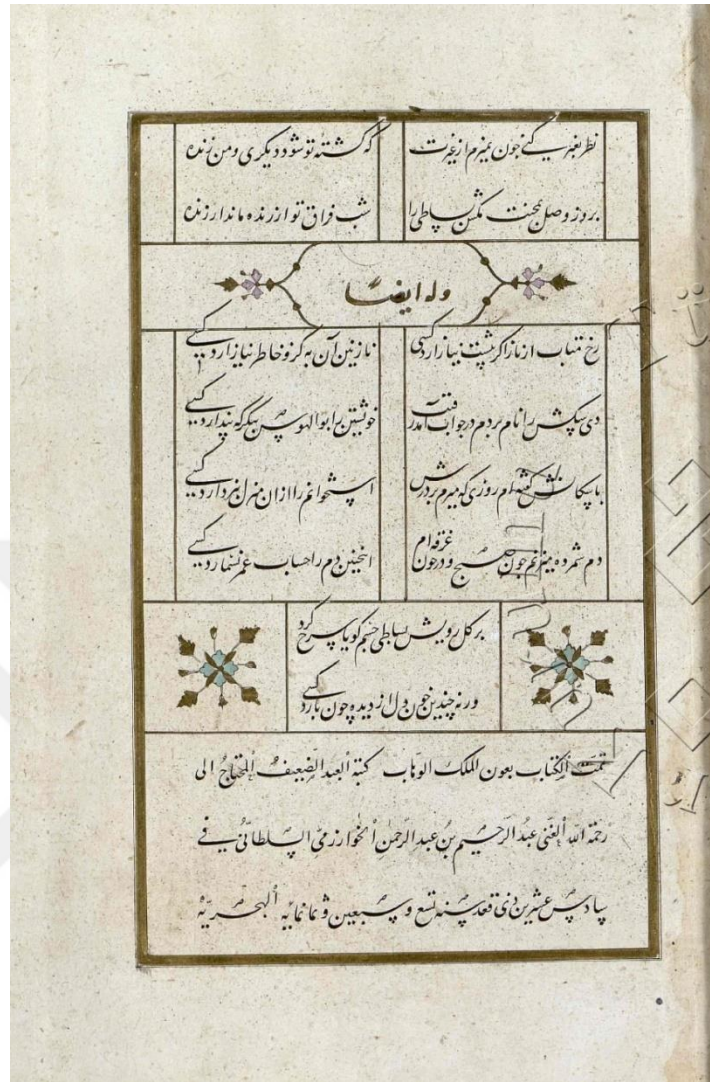 نظر بغیر کنی چون نمیرم از غیرت که کشته تو شود دیگری و من زنده
بروز وصل بمحنت مکش بساطی را شب فراق تو ار زنده ماند ار زنده
وله ایضا
رخ متاب از ناز اگر پشت نیاز آرد کسی نازنین آن به کزو خاطر نیازارد کسی
دی سکش را نام بردم در جواب آمد رقیب خویشتن را بوالهوس سگ که پندارد کسی
با سگانش گفته‌ام روزی که میرم بر درش استخوانم را از آن منزل نبردارد کسی
دم شمرده میزنم چون صبح و در خون غرقه‌ام اینچنین دم را حساب عمر نشمارد کسی
بر گل رویش بساطی چشم گویا سرخ کرد
ورنه چندین خون دل از دیده چون بارد کسی
تمت الکتاب بعون الملک الوهاب کتبه العبد الضعیف المحتاج الی
رحمة الله الغنی عبد الرحیم بن عبد الرحمن الخوارزمی السلطانی فی
سادس عشرین ذی قعد سنه تسع و سبعین و ثمانمایه الهجریه